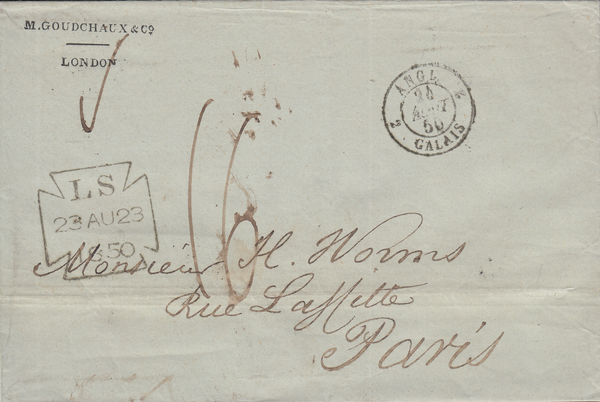 M. GOUDCHAUX & Co
LONDON
ANGL. 2
24
AOUT
50
2 CALAIS
LS
23 AU 23
1850
16
Monsieur H. Worms
Rue Laffitte
Paris